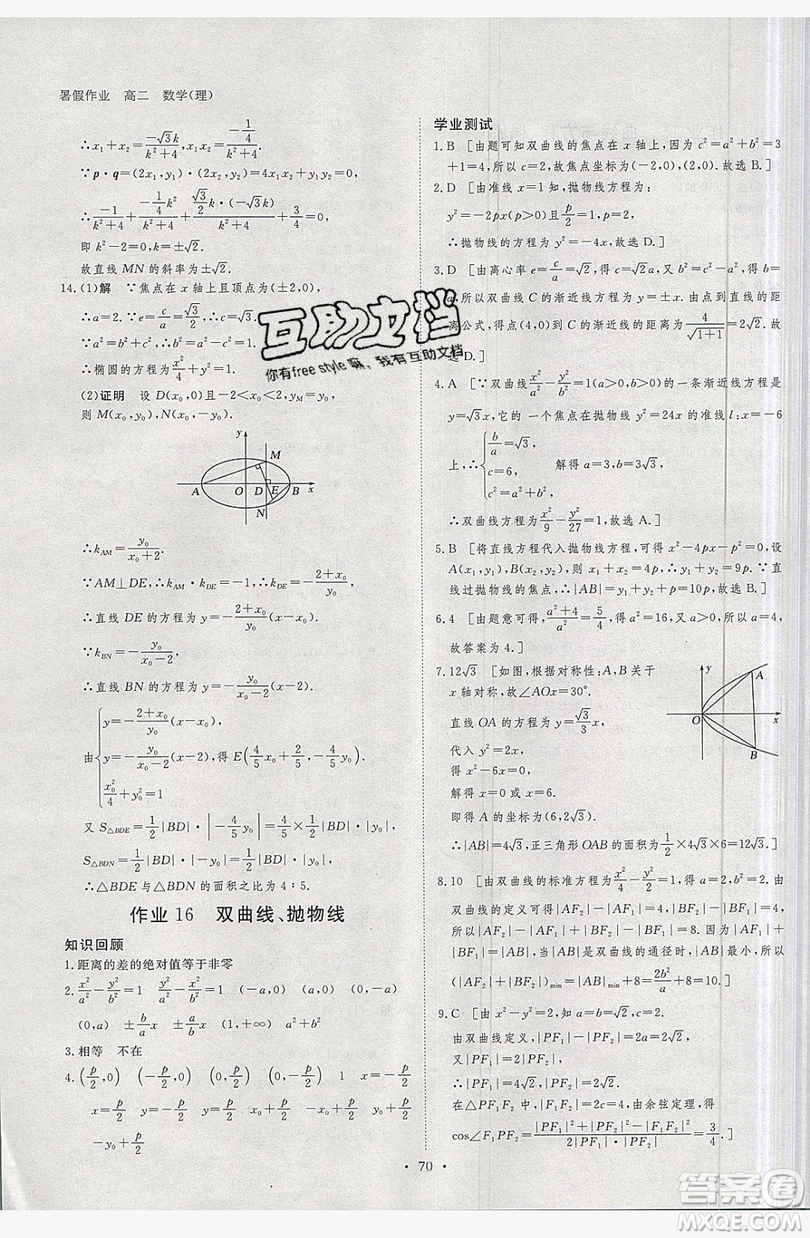 暑假作业 高二 数学(理)
∴x₁+x₂=\frac{-\sqrt{3}k}{k²+4},x₁x₂=\frac{-\frac{1}{4}}{k²+4}
∵p·q=(2x₁,y₁)·(2x₂,y₂)=0,
∴\frac{-1}{k²+4}+\frac{-\frac{1}{4}k²}{k²+4}+\frac{\frac{\sqrt{3}}{2}k·(-\sqrt{3}k)}{k²+4}+\frac{3}{4}=0,
即k²-2=0,k=±\sqrt{2}.
故直线MN的斜率为±\sqrt{2}.
14.(1)解 ∵焦点在x轴上且顶点(±2,0),
∴a=2.∵e=\frac{c}{a}=\frac{\sqrt{3}}{2},∴c=\sqrt{3}.
∴椭圆的方程为\frac{x²}{4}+y²=1.
(2)证明 设D(x₀,0)且-2<x₀<2,
则M(x₀,y₀),N(x₀,-y₀).
y
M
A O D E B x
N
∵k_{AM}=\frac{y₀}{x₀+2}.
∵AM⊥DE,∴k_{AM}·k_{DE}=-1,k_{DE}=-\frac{2+x₀}{y₀}.
∴直线DE的方程为y=-\frac{2+x₀}{y₀}(x-x₀).
∵k_{BN}=-\frac{y₀}{x₀-2},
∴直线BN的方程为y=\frac{-y₀}{x₀-2}(x-2).
由{y=-\frac{2+x₀}{y₀}(x-x₀)
y=\frac{-y₀}{x₀-2}(x-2)
\frac{x₀²}{4}+y₀²=1
得E(\frac{4}{5}x₀+\frac{2}{5},-\frac{4}{5}y₀).
又S_{△BDE}=\frac{1}{2}|BD|·|-\frac{4}{5}y₀|=\frac{2}{5}|BD|·|y₀|,
S_{△BDN}=\frac{1}{2}|BD|·|y₀|,
∴△BDE与△BDN的面积之比为4∶5.
作业16 双曲线、抛物线
知识回顾
1.距离的差的绝对值等于非零
2.\frac{x²}{a²}-\frac{y²}{b²}=1 \frac{y²}{a²}-\frac{x²}{b²}=1 (-a,0) (a,0) (0,-a)
(0,a) ±\frac{b}{a}x ±\frac{a}{b}x (1,+∞) a²+b²
3.相等 不在
4.(\frac{p}{2},0) (-\frac{p}{2},0) (0,-\frac{p}{2}) 1 x=-\frac{p}{2}
x=\frac{p}{2} y=-\frac{p}{2} y=\frac{p}{2} x₀+\frac{p}{2} -x₀+\frac{p}{2} y₀+\frac{p}{2}
-y₀+\frac{p}{2}
学业测试
1.B [由题可知双曲线的焦点在x轴上,因为c²=a²+b²=
3+1=4,所以c=2,故焦点坐标为(-2,0),(2,0).故选B.]
2.D [由准线x=1知,抛物线方程为:
y²=-2px(p>0)且\frac{p}{2}=1,p=2,
∴抛物线的方程为y²=-4x,故选D.]
3.D [由离心率e=\frac{c}{a}=\sqrt{2},得c=\sqrt{2}a,又b²=c²-a²,得b=
a,所以双曲线C的渐近线方程为y=±x,由点到直线的距
离公式,得点(4,0)到C的渐近线的距离为\frac{4}{\sqrt{1+1}}=2\sqrt{2}.故
选D.]
4.A [∵双曲线\frac{x²}{a²}-\frac{y²}{b²}=1(a>0,b>0)的一条渐近线方程是
y=\sqrt{3}x,它的一个焦点在抛物线y²=24x的准线l:x=-6
上,∴{\frac{b}{a}=\sqrt{3}
c=6,
a²+b²=c²
解得a=3,b=3\sqrt{3},
∴双曲线方程为\frac{x²}{9}-\frac{y²}{27}=1,故选A.]
5.B [将直线方程代入抛物线方程,可得x²-4px-p²=0,设
A(x₁,y₁),B(x₂,y₂),则x₁+x₂=4p,∴y₁+y₂=9p.∵直
线过抛物线的焦点,∴|AB|=y₁+y₂+p=10p,故选B.]
6.4 [由题意可得,\frac{a²+4}{a²}=\frac{5}{4},即a²=16,又a>0,所以a=4.
故答案为4.]
7.12\sqrt{3} [如图,根据对称性:A,B关于
x轴对称,故∠AOx=30°.
直线OA的方程为y=\frac{\sqrt{3}}{3}x,
代入y²=2x,
得x²-6x=0,
解得x=0或x=6.
即得A的坐标为(6,2\sqrt{3}).
y
A
O x
B
∴|AB|=4\sqrt{3},正三角形OAB的面积为\frac{1}{2}×4\sqrt{3}×6=12\sqrt{3}.]
8.10 [由双曲线的标准方程为\frac{x²}{4}-\frac{y²}{2}=1,得a=2,由双曲线
的定义可得|AF₂|-|AF₁|=4,|BF₂|-|BF₁|=4,所以|AF₂|-|AF₁|+
|BF₂|-|BF₁|=8.因为|AF₁|+|BF₁|=|AB|,当
|AB|是双曲线的通径时,|AB|最小,所以
(|AF₂|+|BF₂|)_{min}=|AB|_{min}+8=\frac{2b²}{a}+8=10.]
9.C [由x²-y²=2,知a=b=\sqrt{2},c=2.
由双曲线定义,|PF₁|-|PF₂|=2a=2\sqrt{2},
又|PF₁|=2|PF₂|,
∴|PF₁|=4\sqrt{2},|PF₂|=2\sqrt{2},
在△PF₁F₂中,|F₁F₂|=2c=4,由余弦定理,得
cos∠F₁PF₂=\frac{|PF₁|²+|PF₂|²-|F₁F₂|²}{2|PF₁|·|PF₂|}=\frac{3}{4}.]
·70·
互助文档
你有free style嘛、我有互助文档
答案圈
MXQE.COM